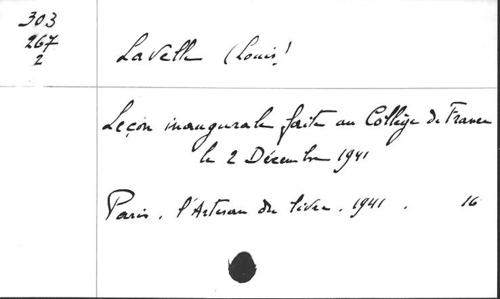 303
267
2
Lavelle (Louis)
Leçon inaugurale faite au Collège de France
le 2 Décembre 1941
Paris. l'Artisan du livre. 1941. 16